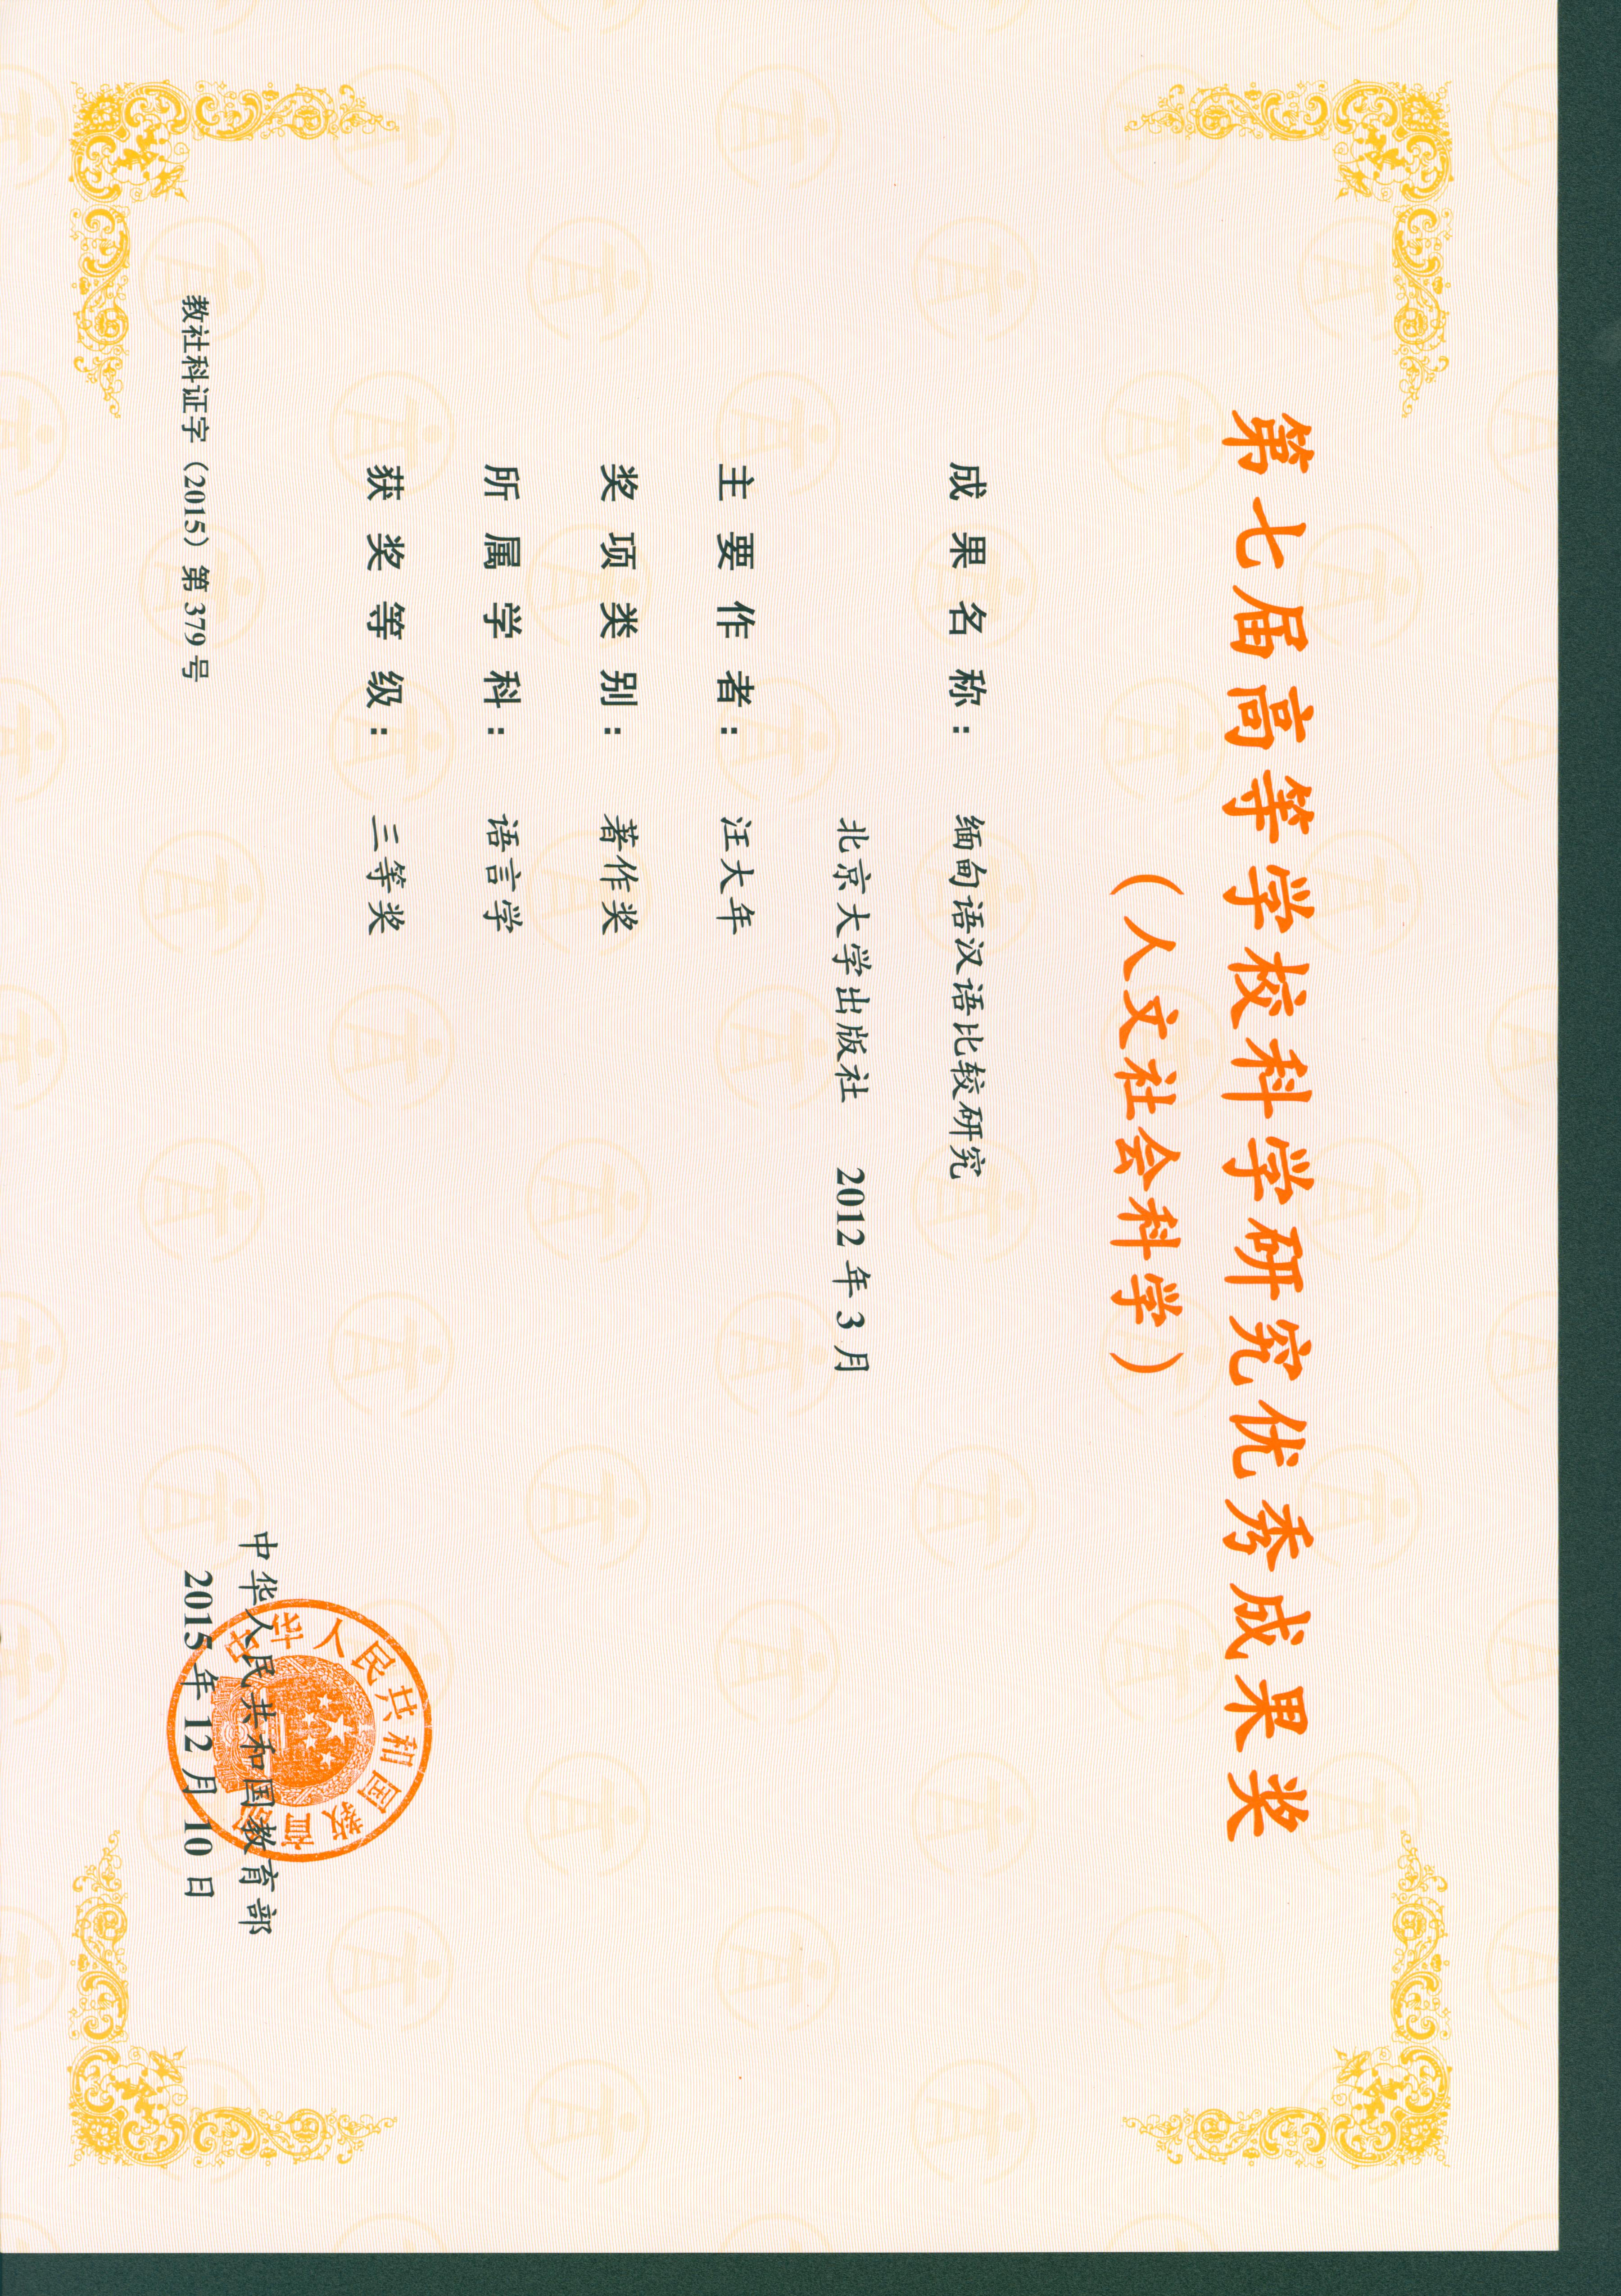 第七届高等学校科学研究优秀成果奖
（人文社会科学）
成果名称： 缅甸语汉语比较研究
北京大学出版社 2012年3月
主要作者： 汪大年
奖项类别： 著作奖
所属学科： 语言学
获奖等级： 三等奖
中华人民共和国教育部
中华人民共和国教育部
2015年12月10日
教社科证字（2015）第379号